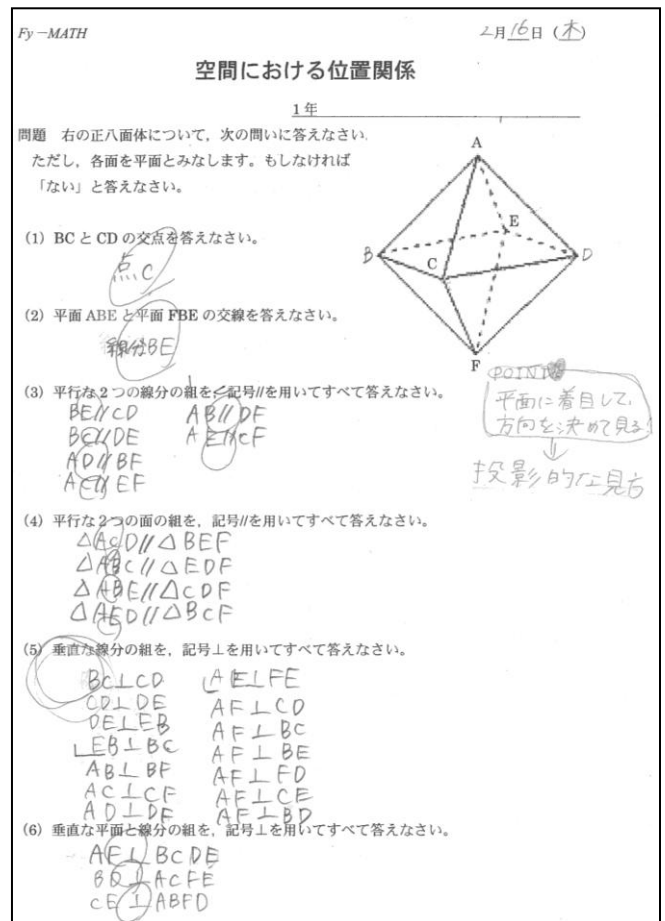 Fy－MATH
2月16日（木）
空間における位置関係
1年
問題　右の正八面体について，次の問いに答えなさい.
ただし，各面を平面とみなします。もしなければ
「ない」と答えなさい。
A
E
B
D
C
F
(1) BC と CD の交点を答えなさい。
点C
(2) 平面 ABE と平面 FBE の交線を答えなさい。
線分BE
(3) 平行な2つの線分の組を，記号//を用いてすべて答えなさい。
BE//CD　AB//DF
BC//DE　AE//CF
AD//BF
AC//EF
POINT
平面に着目して、
方向を決めて見る!
⇓
投影的な見方
(4) 平行な2つの面の組を，記号//を用いてすべて答えなさい。
△ACD//△BEF
△ABC//△EDF
△ABE//△CDF
△AED//△BCF
(5) 垂直な線分の組を，記号⊥を用いてすべて答えなさい。
BC⊥CD　AE⊥FE
CD⊥DE　AF⊥CD
DE⊥EB　AF⊥BC
EB⊥BC　AF⊥BE
AB⊥BF　AF⊥FD
AC⊥CF　AF⊥CE
AD⊥DF　AF⊥BD
(6) 垂直な平面と線分の組を，記号⊥を用いてすべて答えなさい。
AF⊥BCDE
BD⊥ACFE
CE⊥ABFD